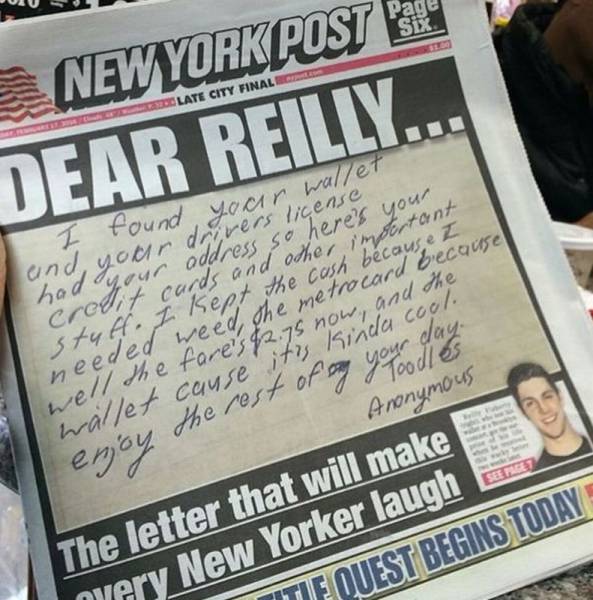 Page
Six.
NEW YORK POST
$1.00
FEBRUARY 17, 2016 / Clouds, 48° / Weather P. 32
LATE CITY FINAL
nypost.com
DEAR REILLY...
I found your wallet
and your drivers license
had your address so here's your
credit cards and other important
stuff. I kept the cash because I
needed weed, the metrocard because
well the fare's $2.75 now, and the
wallet cause it's kinda cool.
enjoy the rest of your day.
Toodles
Anonymous
The letter that will make
every New Yorker laugh
Reilly Flaherty
SEE PAGE 7
TITLE QUEST BEGINS TODAY